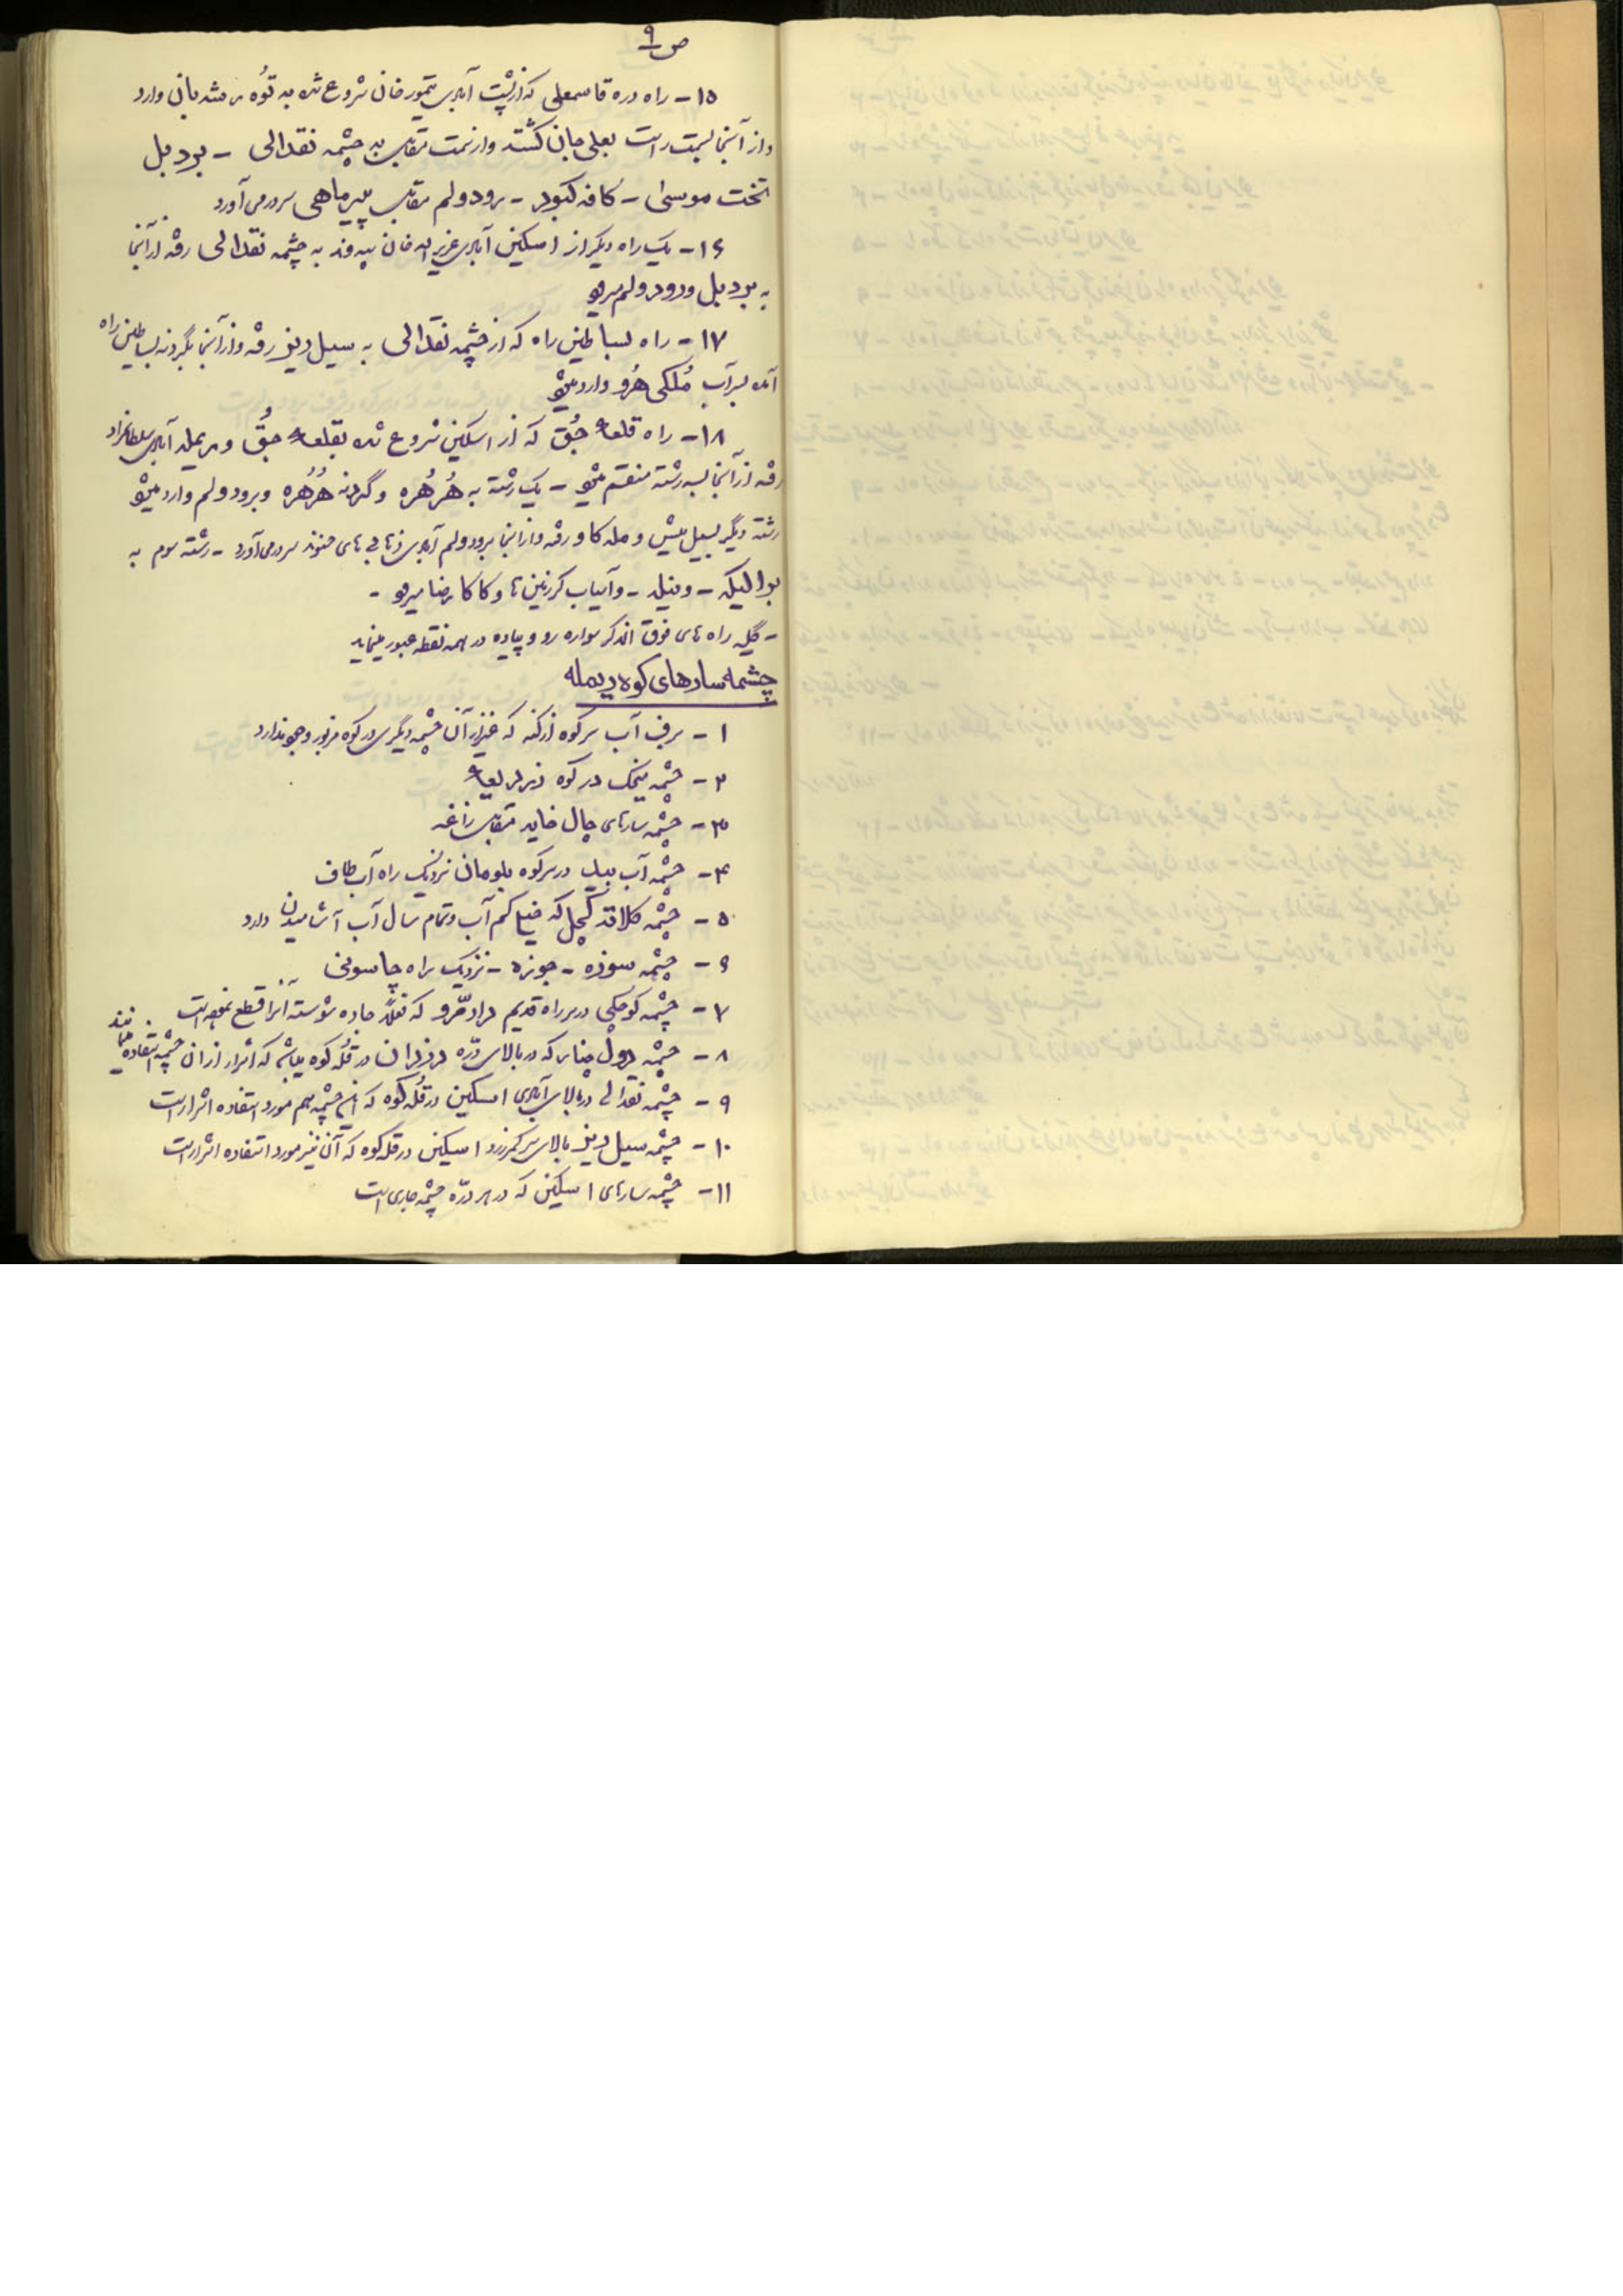 ص ۹
۱۵ – راه دره قاسمعلی که از پشت آبادی تیمورخان شروع شده به توُه مشدبان وارد
و از آنجا بسمت راست بعلی جان کشته و از سمت مقابل به چشمه نقدالی – برد بل
تخت موسی – کافه کبود – برود ولم مقابل پیرماهی سر در می آورد
۱۶ – یک راه دیگر از اسکین آبادی عزیزاله خان بیرانوند به چشمه نقدالی رفته از آنجا
به برد بل و رود ولم میرود
۱۷ – راه بساطین راه که از چشمه نقدالی به سیل دیز رفته و از آنجا بگردنه بساطین راه
آمده بسرآب مُلکی هُرو وارد میشود
۱۸ – راه قلعه جُق که از اسکین شروع شده بقلعه جُق و آبادی سلطانمراد
رفته از آنجا بسه رشته منقسم میشود – یک رشته به هُرهُره و گردنه هُرهُره و برود ولم وارد میشود
رشته دیگر بسیل میش و مله کاو رفته و از آنجا برود ولم آبادی سر در می آورد – رشته سوم به
– و آسیاب و کاکارضا میرود –
– کلیه راه های فوق الذکر سواره رو و پیاده در همه نقطه عبور مینماید
چشمه سارهای کوه دیمله
۱ – برف آب سر کوه ازگنه که غیر از آن چشمه دیگری در کوه مزبور وجود ندارد
۲ – چشمه میخک در کوه
۳ – چشمه سارهای چال خاید مقابل زاغه
۴ – چشمه آب بید در سرکوه بلومان نزدیک راه آب طاف
۵ – چشمه کلاقد کچل که خیلی کم آب و تمام سال آب آشامیدن دارد
۶ – چشمه سوزه – جوزه – نزدیک راه چاسونی
۷ – چشمه کوچکی در سر راه قدیم مرادمرو که فعلاً جاده شوسته آنرا قطع نموده است
۸ – چشمه دول چنار که در بالای درّه در قله کوه میباشد که اشرار از آن چشمه استفاده مینمایند
۹ – چشمه نقدالی در بالای آبادی اسکین در قله کوه که این چشمه هم مورد استفاده اشرار است
۱۰ – چشمه سیل دیز بالای سر کمرزرد اسکین در قله کوه که آن نیز مورد استفاده اشرار است
۱۱ – چشمه سارهای اسکین که در هر درّه چشمه جاری است